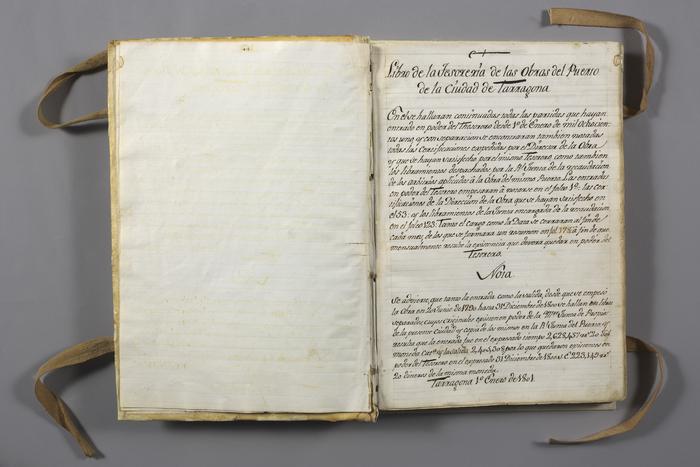 Libro de la Tesorería de las Obras del Puerto
de la Ciudad de Tarragona
En el se hallaran continuadas todas las partidas que hayan
entrado en poder del Tesorero desde 1º de Enero de mil ochocien-
tos uno, y con separacion se encontraran tambien notadas
todas las Certificaciones expedidas por el Director de la Obra
y que se hayan satisfecho por el mismo Tesorero, como tambien
los libramientos despachados por la Rl. Junta de la recaudacion
de los arbitrios aplicados à la Obra del mismo Puerto. Las entradas
en poder del Tesorero empesaran à notarse en el foleo 1º: las cer-
tificaciones de la Direccion de la Obra que se hayan satisfecho en
el 53: y los libramientos de la Junta encargada de la recaudacion
en el foleo 123: Tanto el cargo como la Data se cerraran al fin de
cada mes, de los que se formara un resumen en fol. 178 à fin de que
mensualmente resulte la existencia que devera quedar en poder del
Tesorero.
Nota
Se advierte, que tanto la entrada como la salida, desde que se empesó
la Obra en Junio de 1790 hasta 31 Diciembre de 1800 se hallan en Libro
separado, cuyos originales existen en poder de la Junta de
de la presente Ciudad y copia de los mismos en la Rl. Junta del Puerto, y
resulta que la entrada fue en el expresado tiempo 2,628,457 20
moneda Cat.na y la salida 2,405,308 por lo que quedaron existentes en
poder del Tesorero en el expresado 31 Diciembre de 1800 223,149
20 dineros de la misma moneda.
Tarragona 1º Enero de 1801.